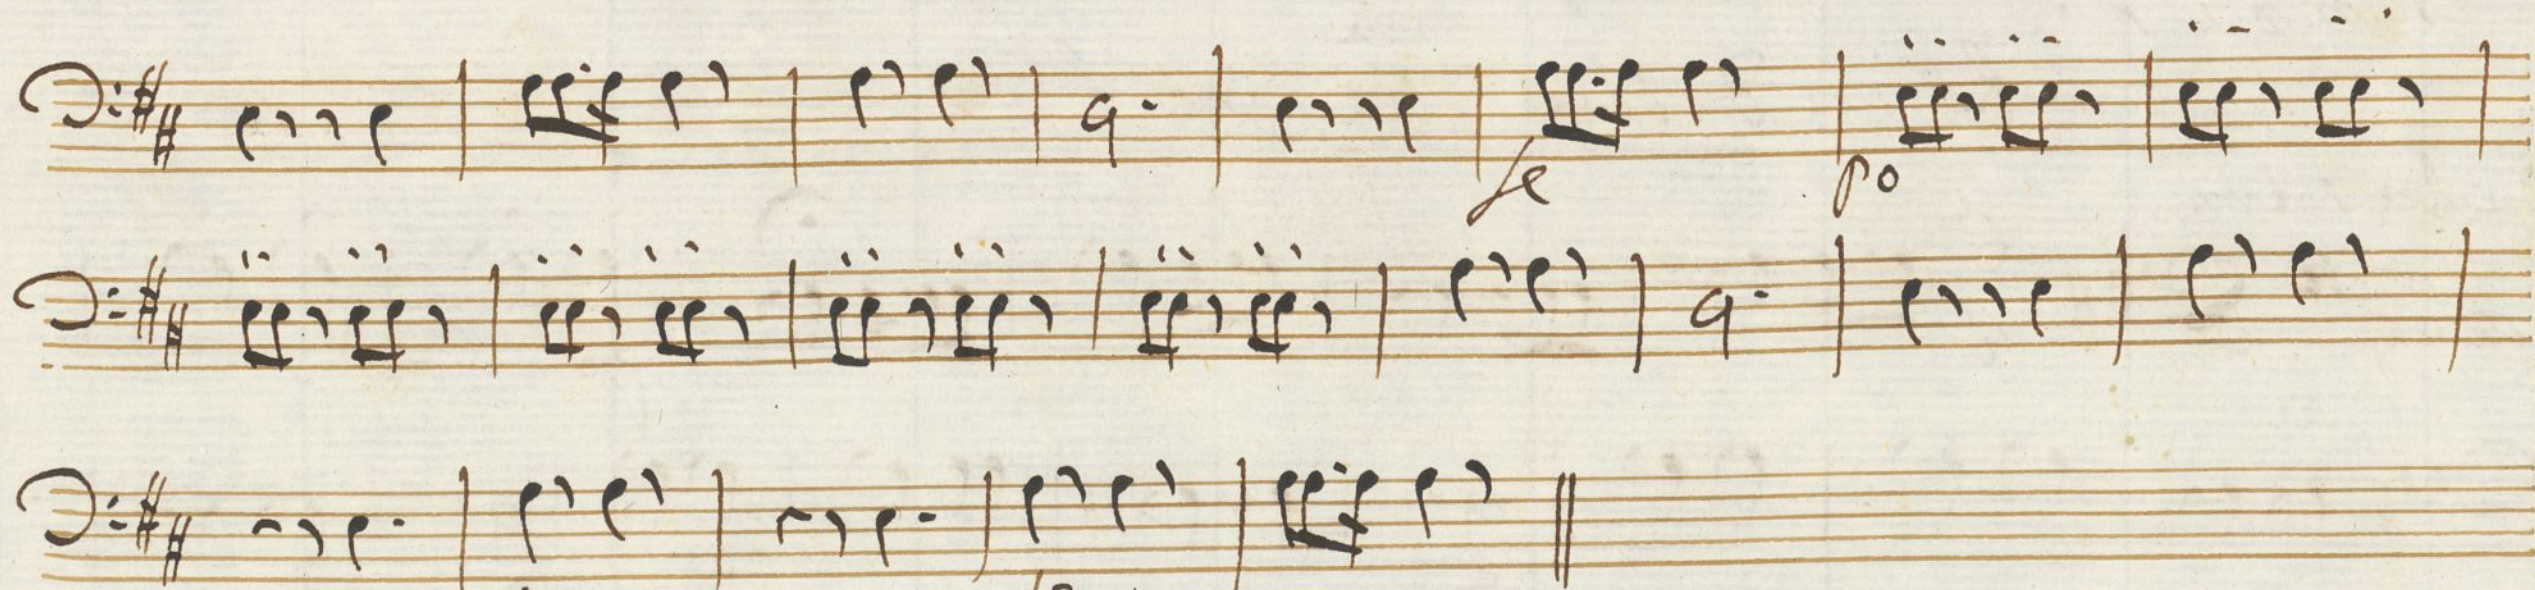 fe po